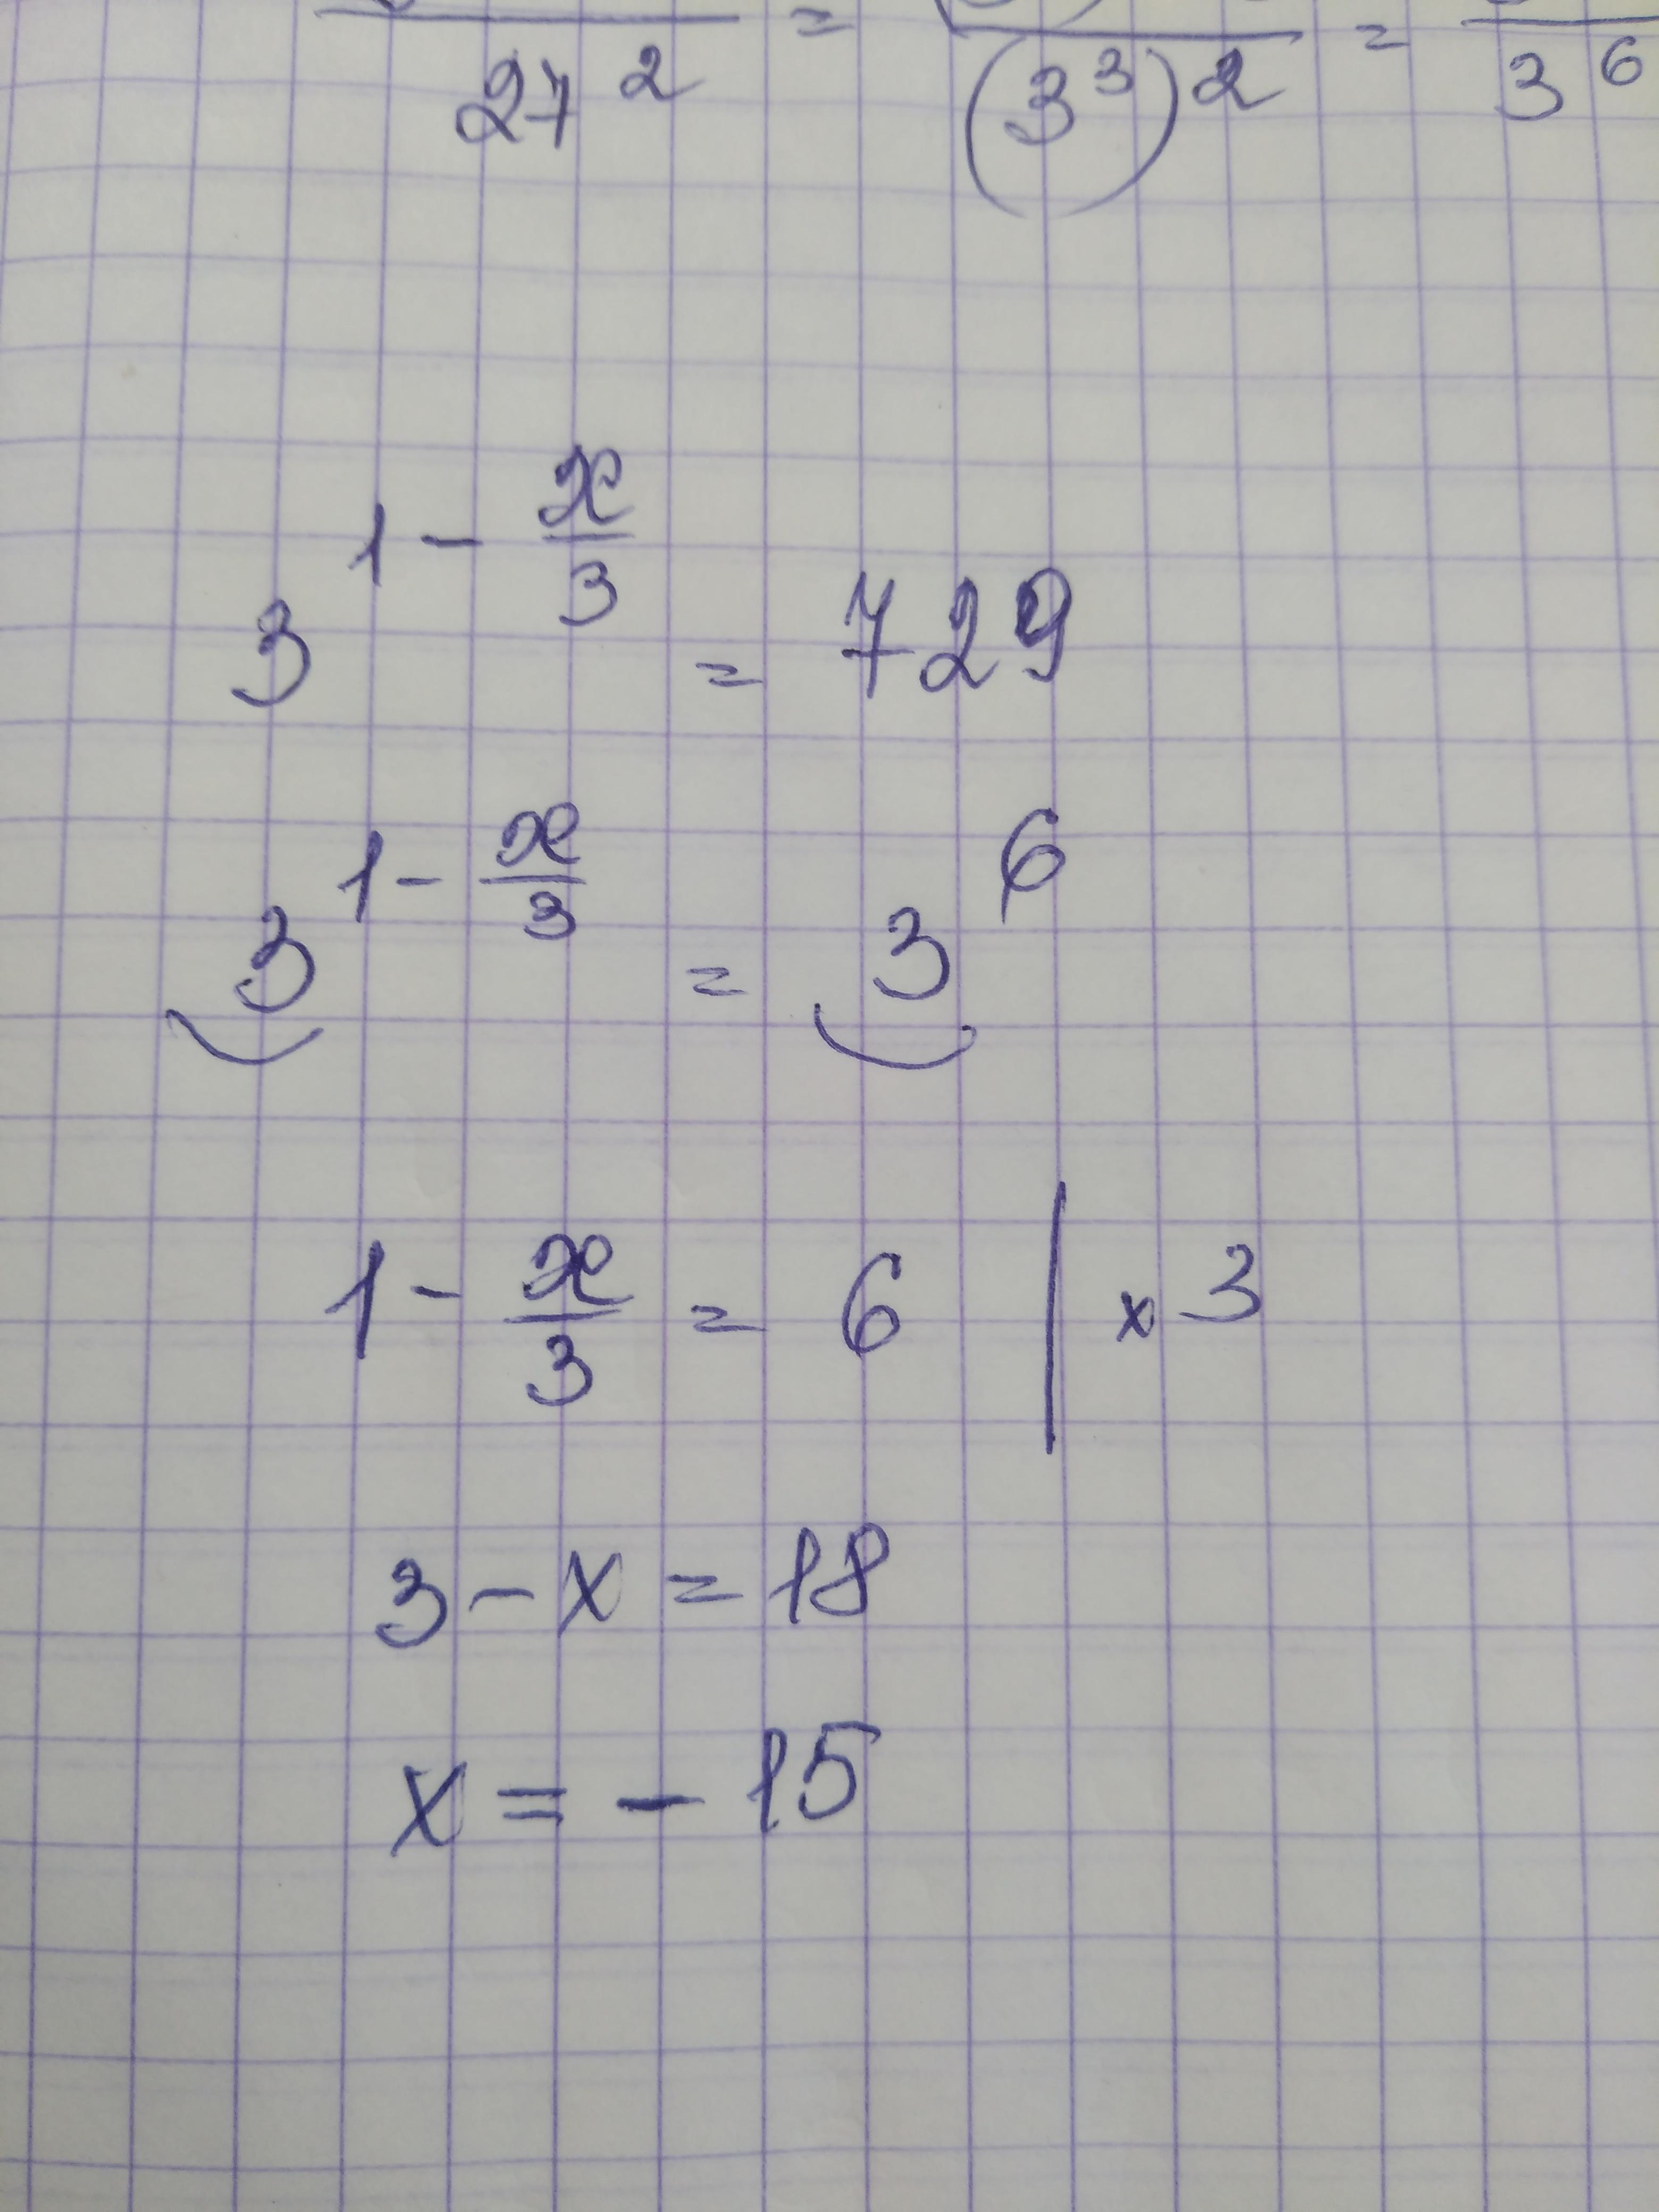 27² = (3³)² = 3⁶
3^(1 - x/3) = 729
3^(1 - x/3) = 3⁶
1 - x/3 = 6 | x 3
3 - x = 18
x = - 15